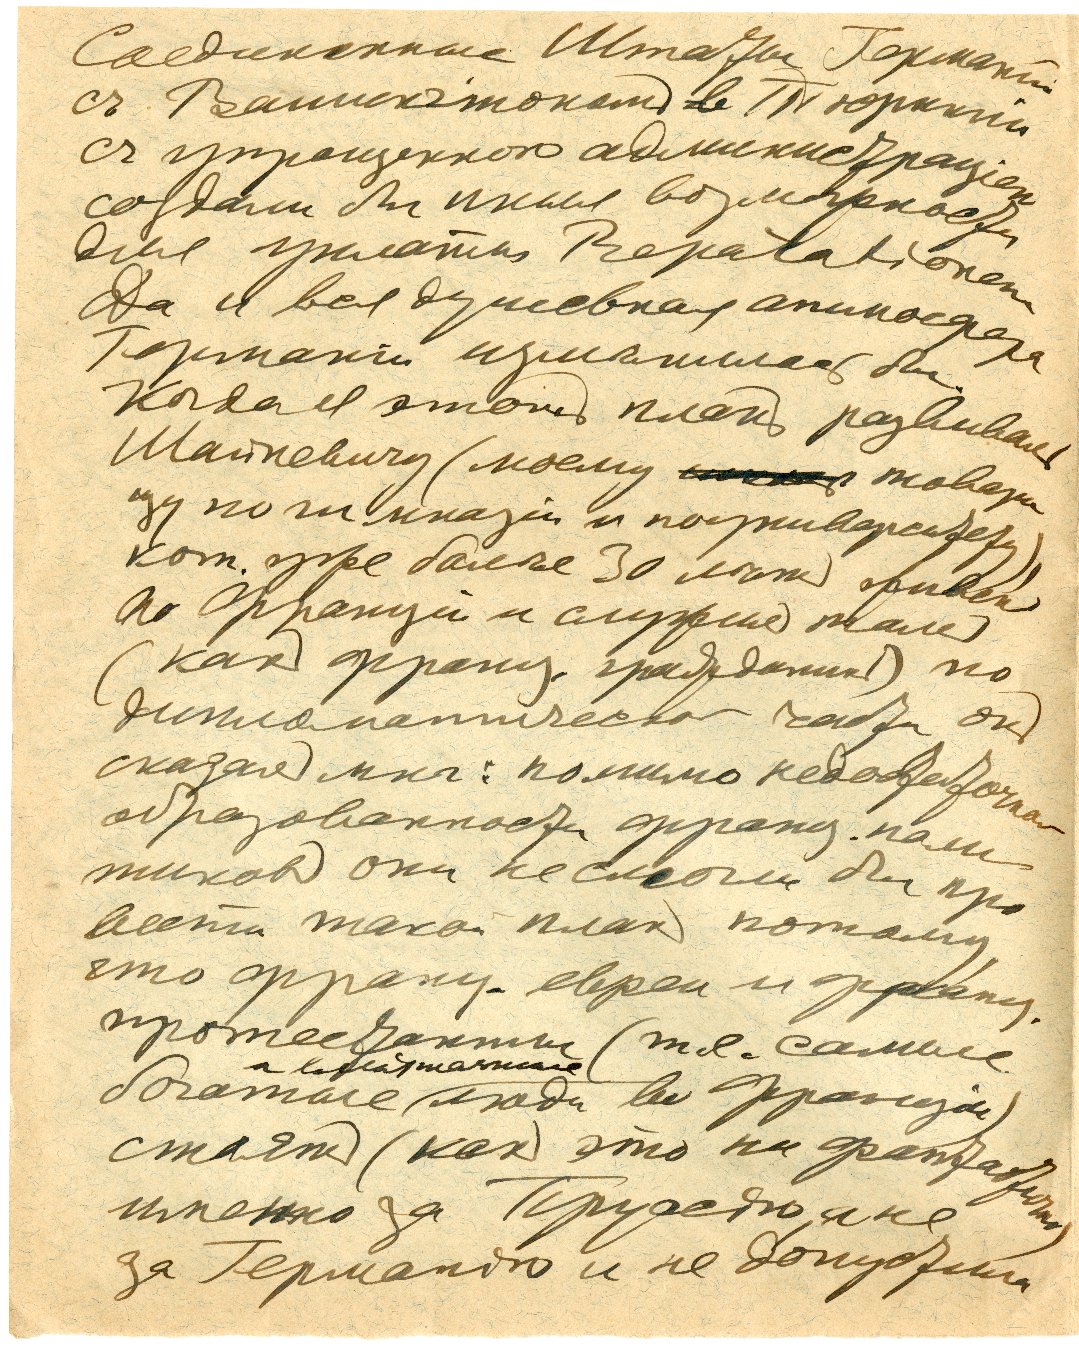 Соединенные Штаты Германіи
съ Вашингтономъ в Тюрингіи
съ упрощенною администраціею
создали бы иныя возможности
для уплаты Reparationen.
Да и вся душевная атмосфера
Германіи измѣнилась бы.
Когда я этотъ планъ развивалъ
(моему товари
щу по гимназіи и по университету)
кот. уже более 30 лѣтъ живетъ
во Франціи и служилъ тамъ
(какъ франц. гражданинъ) по
дипломатической части онъ
сказалъ мнѣ: помимо недостаточной
образованности франц. поли
тиковъ они не смогли бы про
вести такой планъ потому,
что франц. евреи и франц.
протестанты (т.е. самые
и вліятельные
богатые люди во Франціи)
стоятъ (какъ это ни фантастично)
именно за Пруссію, а не
за Германію и не допустили